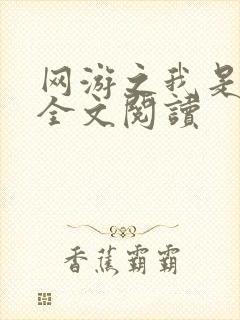 网游之我是
全文閱讀
香蕉霸霸